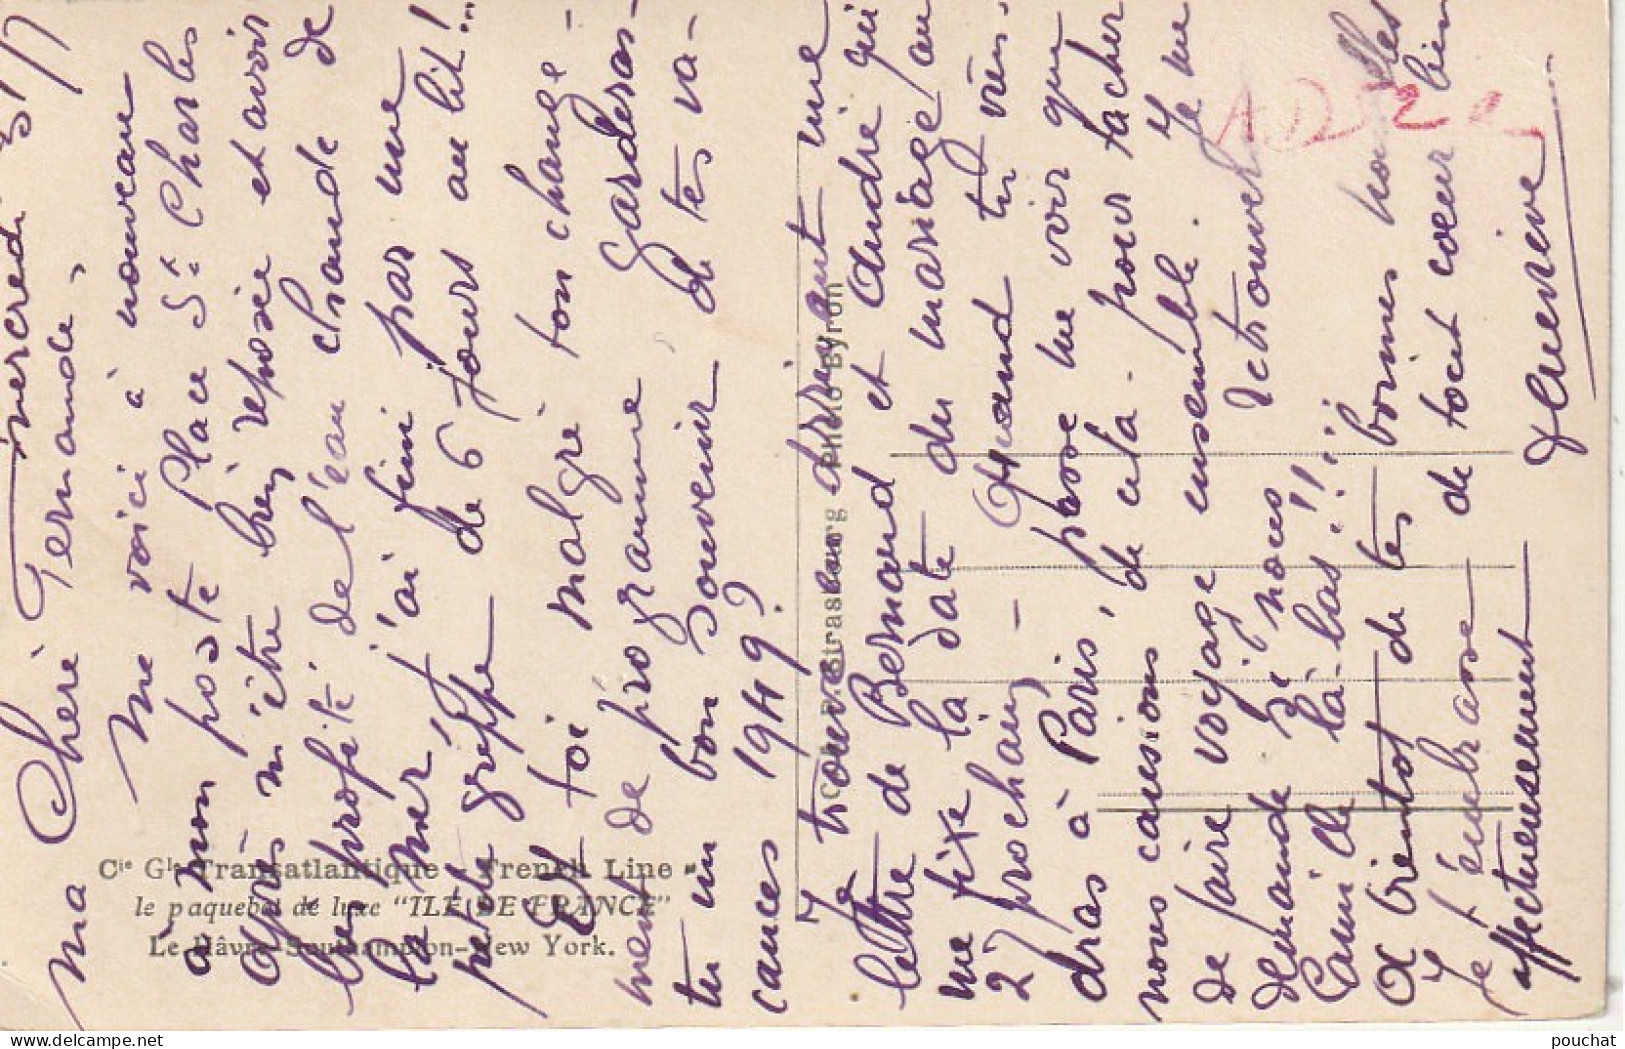 Mercredi 31/7
Ma Chère Fernande,
Me voici à nouveau
à mon poste Place St Charles
après m'être bien reposée et avoir
bien profité de l'eau chaude de
la mer. J'ai fini par une
petite grippe de 6 jours au lit!..
Et toi malgré ton change-
ment de programme garderas-
tu un bon souvenir de tes va-
cances 1949?
Je trouve en arrivant une
lettre de Bernard et André qui
me fixe la date du mariage au
27 prochain – Quand tu vien-
dras à Paris, passe me voir que
nous causions de cela pour tâcher
de faire voyage ensemble. Je me
demande si nous retrouverons
Camille là-bas!!!!
A bientôt de tes bonnes nouvelles
Je t'embrasse de tout cœur bien
affectueusement
Geneviève
Cie Gle Transatlantique - French Line
le paquebot de luxe "ILE DE FRANCE"
Le Hâvre-Southampton-New York.
Strasbourg Photo Byron
pouchat